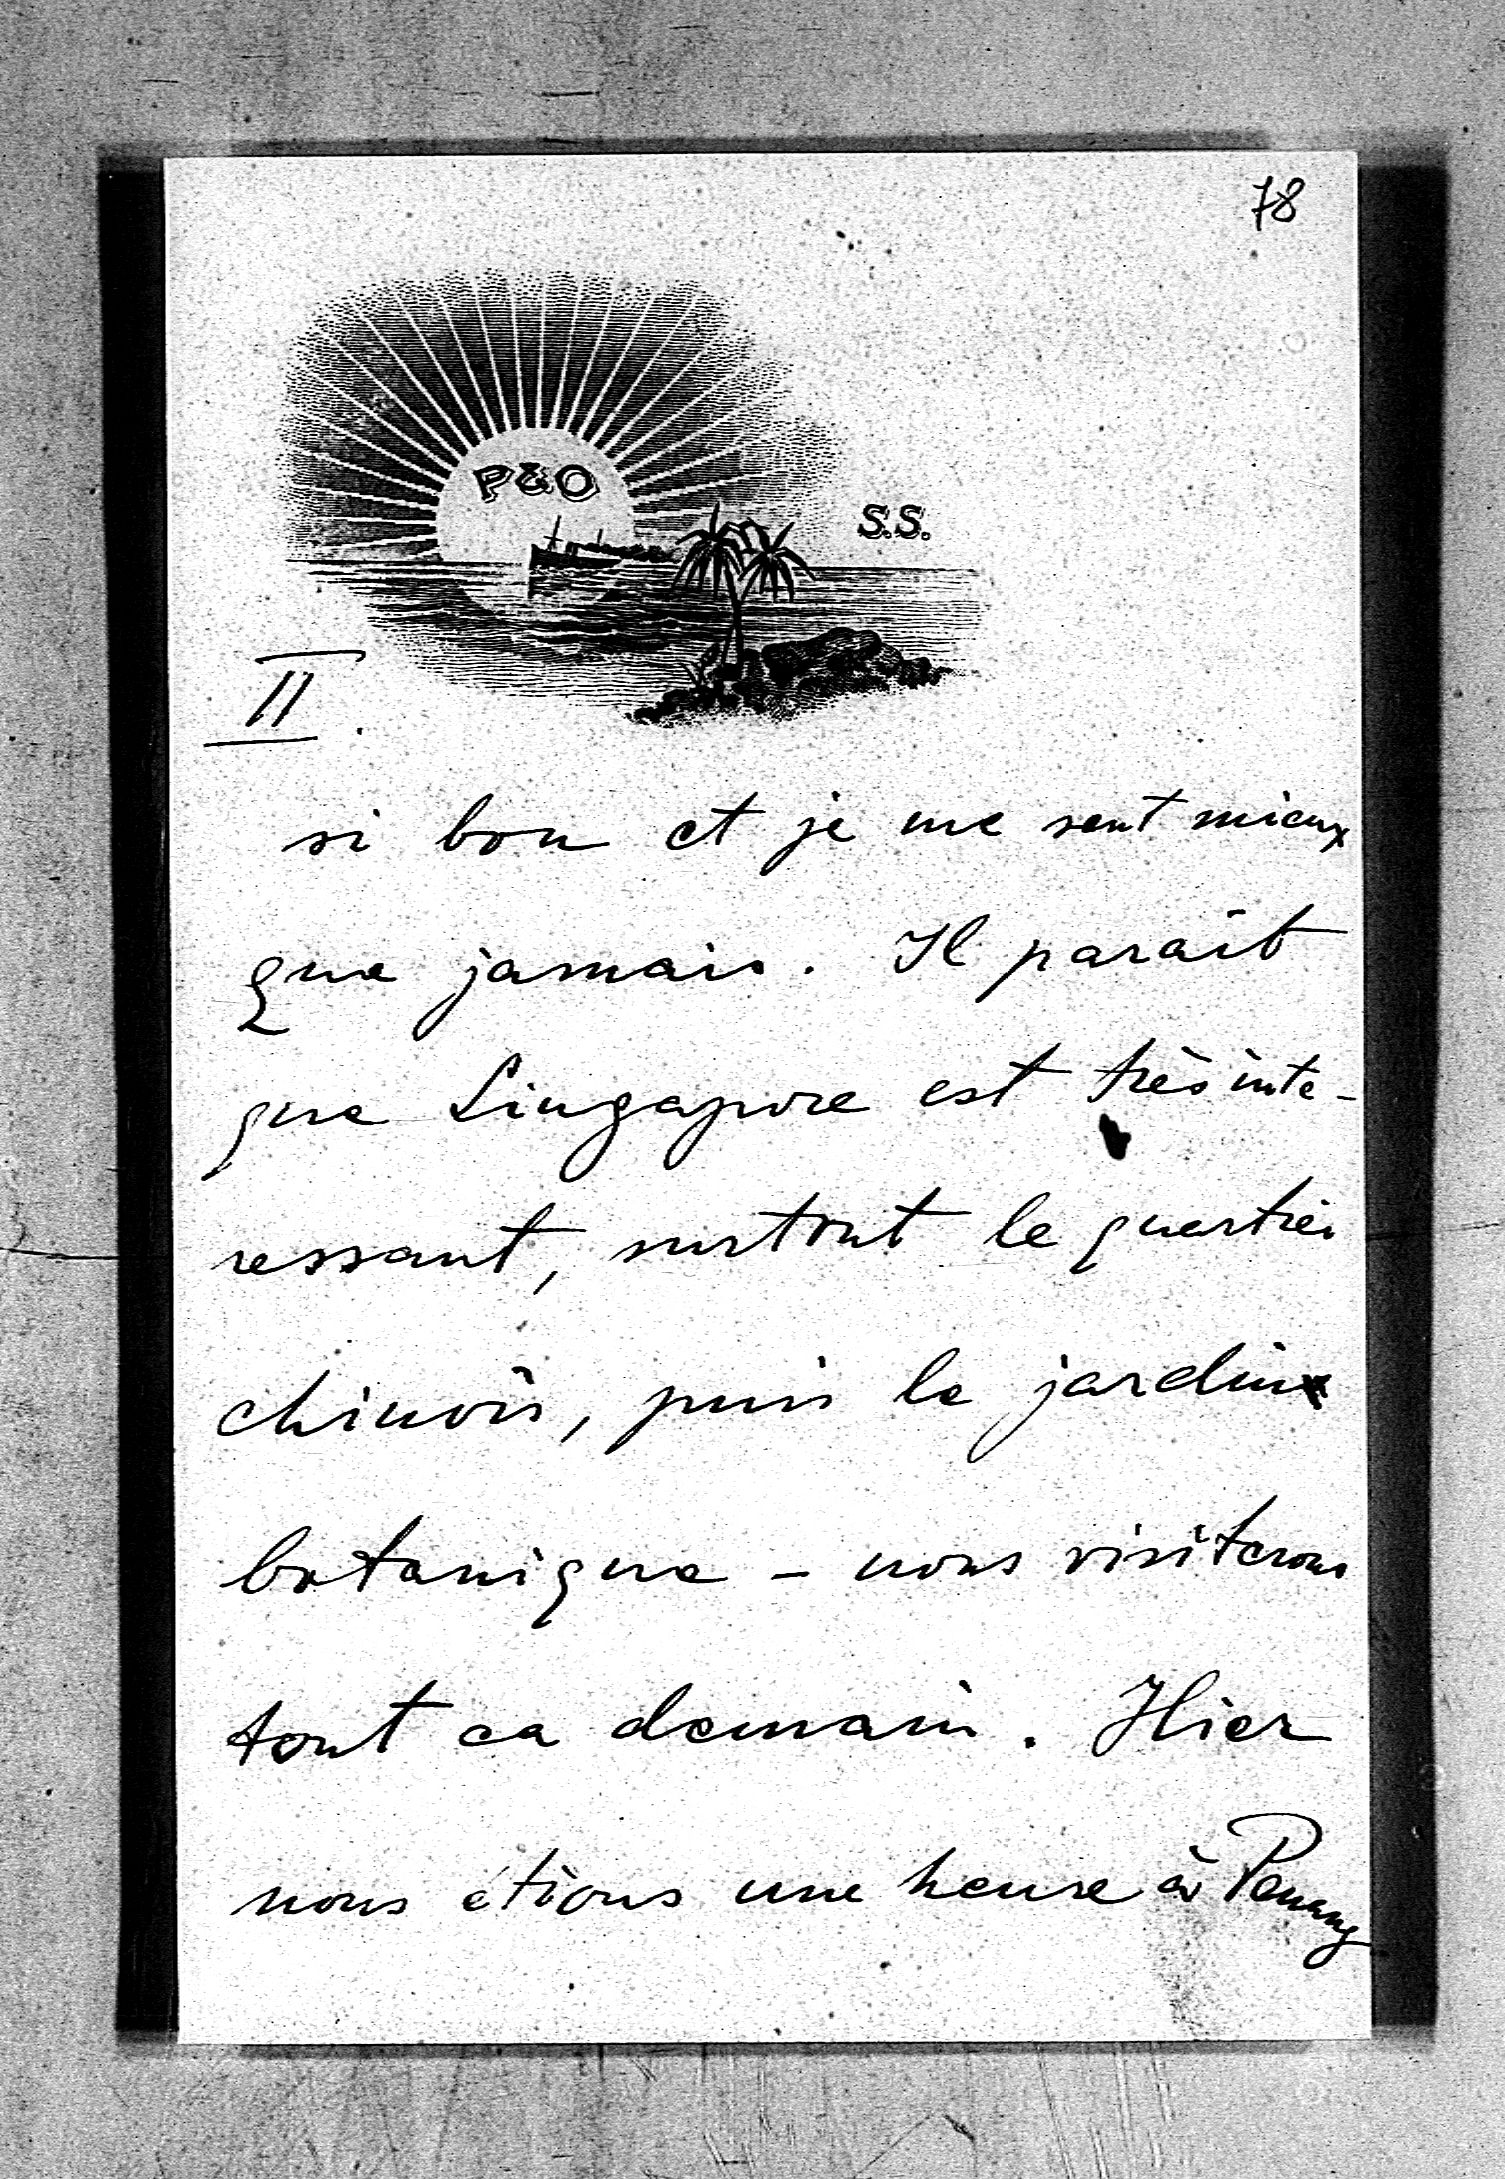 78
P&O
S.S.
II.
si bon et je me sent mieux
que jamais. Il parait
que Singapore est très inte-
ressant, surtout le quartier
chinois, puis le jardin
botanique - nous visiterons
tout ca demain. Hier
nous étions une heure à Penang